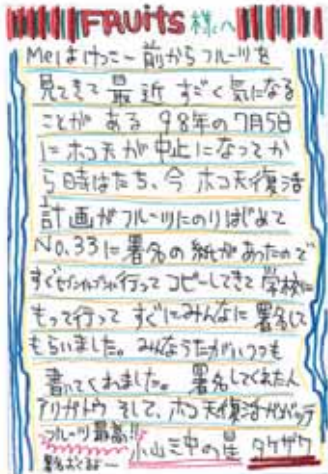 FRUiTS 様へ
Meはけっこー前からフルーツを
見てきて最近すごく気になる
ことがある 98年の7月5日
にホコ天が中止になってか
ら時はたち、今 ホコ天復活
計画がフルーツにのりはじめて
No.33に署名の紙があったので
すぐセブンイレブン行ってコピーしてきて学校に
もって行って すぐにみんなに署名して
もらいました。みんなうたがいつつも
書いてくれました。署名してくれた人
アリガトウ そして、ホコ天復活ガンバッテ
フルーツ最高!!
小山三中の星 タケザワ